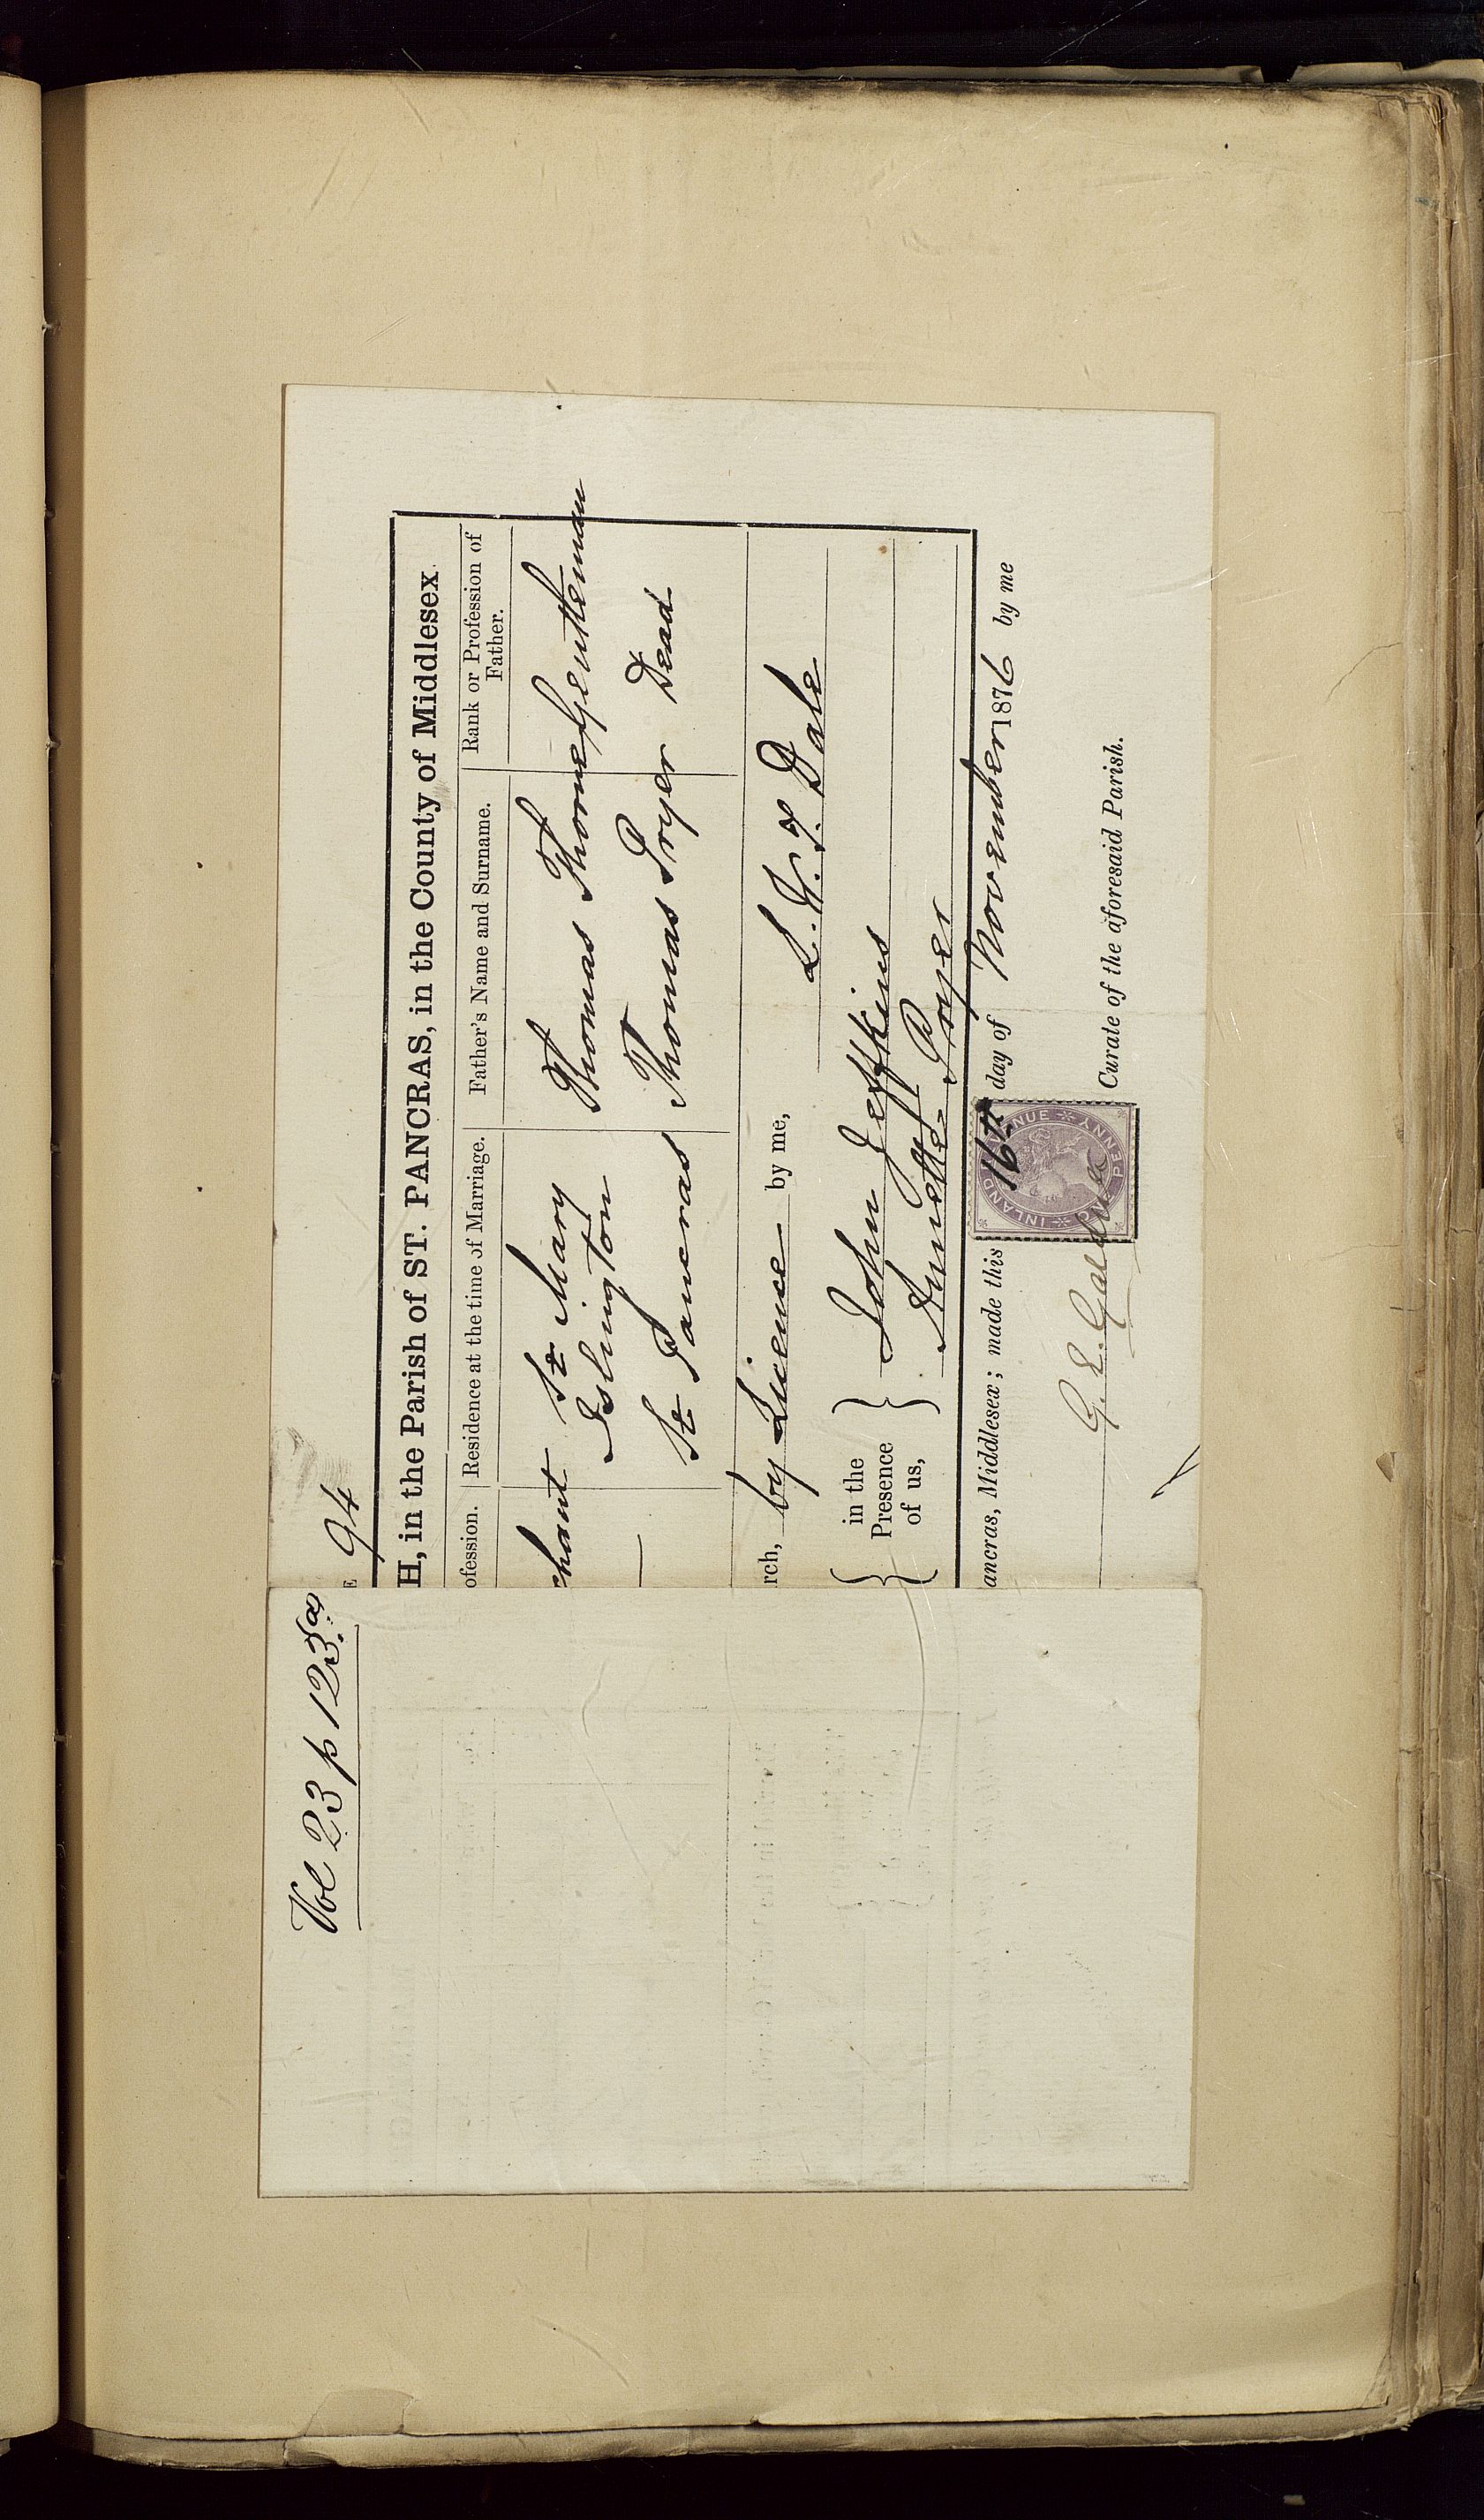 Vol 23 p 123.(a)
E 94
H, in the Parish of ST. PANCRAS, in the County of Middlesex.
ofession. Residence at the time of Marriage. Father's Name and Surname. Rank or Profession of Father.
chant St Mary Islington Thomas Thorne Gentleman
— St Pancras Thomas Pryer Dead
rch, by Licence by me, L. W. T. Dale
in the Presence of us, John Jeffkins
Pryer
ancras, Middlesex; made this 16th day of November 1876 by me
INLAND REVENUE
PENNY
G. E.
Curate of the aforesaid Parish.